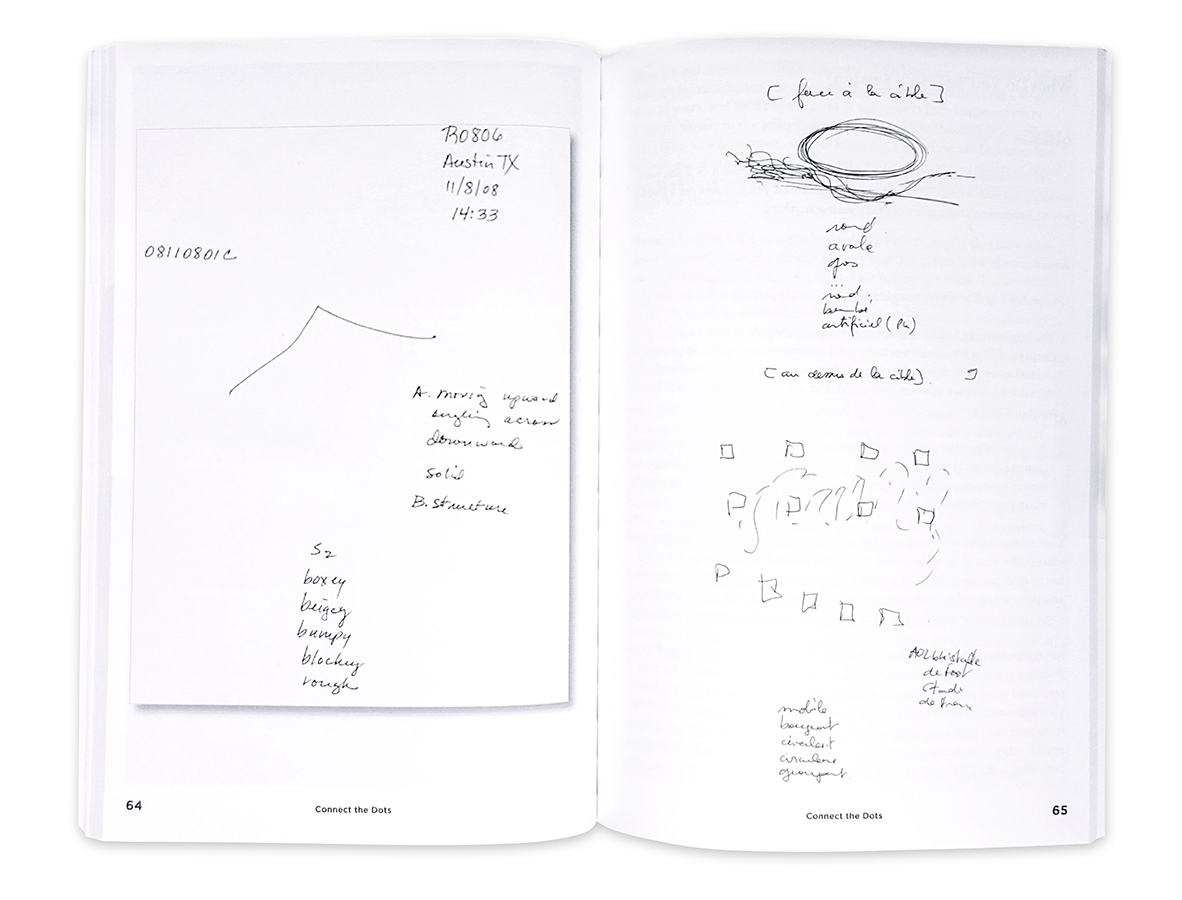 R0806
Austin TX
11/8/08
14:33
08110801C
A. moving upward
angling across
downward
solid
B. structure
S2
boxey
beigey
bumpy
blockey
rough
64
Connect the Dots
[face à la cible]
rond
ovale
gros
...
rond
bombé
artificiel (PH)
[au dessus de la cible].
AOL
de foot
Stade
de
mobile
bougeant
circulant
circulaire
groupant.
Connect the Dots
65